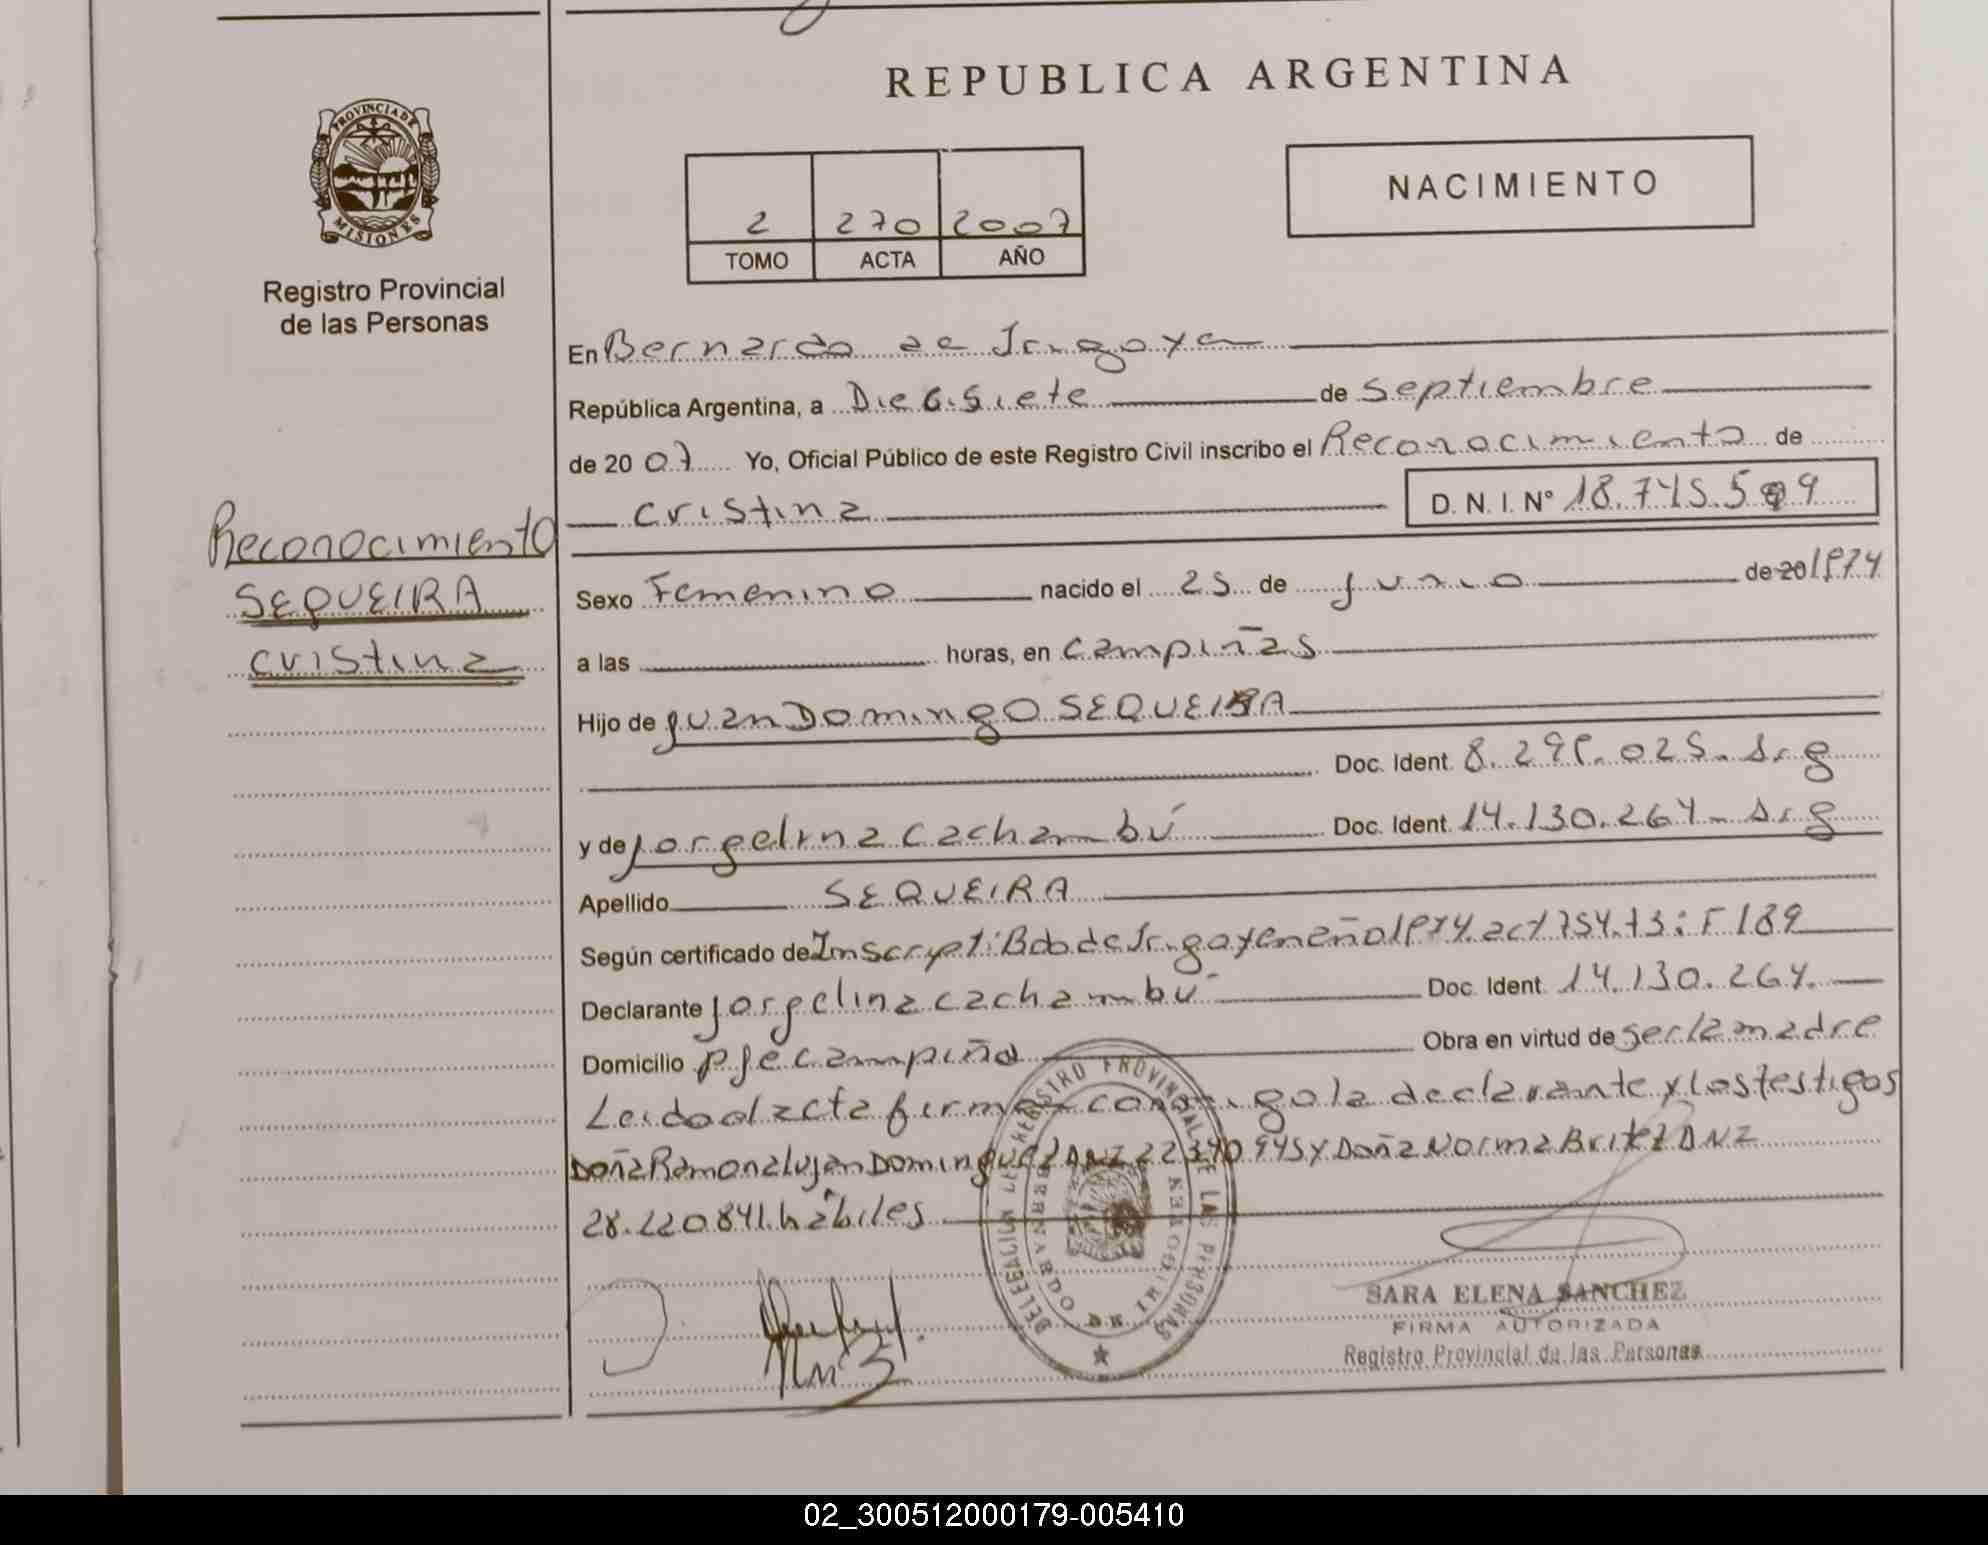 REPUBLICA ARGENTINA
PROVINCIA DE
MISIONES
Registro Provincial
de las Personas
NACIMIENTO
2 270 2007
TOMO ACTA AÑO
En Bernardo de Irigoyen
República Argentina, a Diesisiete de septiembre
de 2007 Yo, Oficial Público de este Registro Civil inscribo el Reconocimiento de
cristina D. N. I. N° 18.745.5 9
Reconocimiento
SEQUEIRA
cristina
Sexo Femenino nacido el 25 de junio de 20 1974
a las horas, en campiñas
Hijo de juan Domingo SEQUEIRA
Doc. Ident. 8.299.025.
y de jorgelina cachambú Doc. Ident. 14.130.264
Apellido SEQUEIRA
Según certificado de Inscript: Bdo de Irigoyen año 1974. act 754. t3: F 189
Declarante jorgelina cachambú Doc. Ident. 14.130.264.
Domicilio pje campiña Obra en virtud de ser la madre
Leido al acta firma conmigo la declarante y los testigos
Doña Ramona lujan Dominguez DNI 22370945 y Doña Norma Britez DNI
28.220.841. hábiles
DELEGACION DEL REGISTRO PROVINCIAL DE LAS PERSONAS
BERNARDO DE IRIGOYEN
SARA ELENA SANCHEZ
FIRMA AUTORIZADA
Registro Provincial de las Personas
02_300512000179-005410